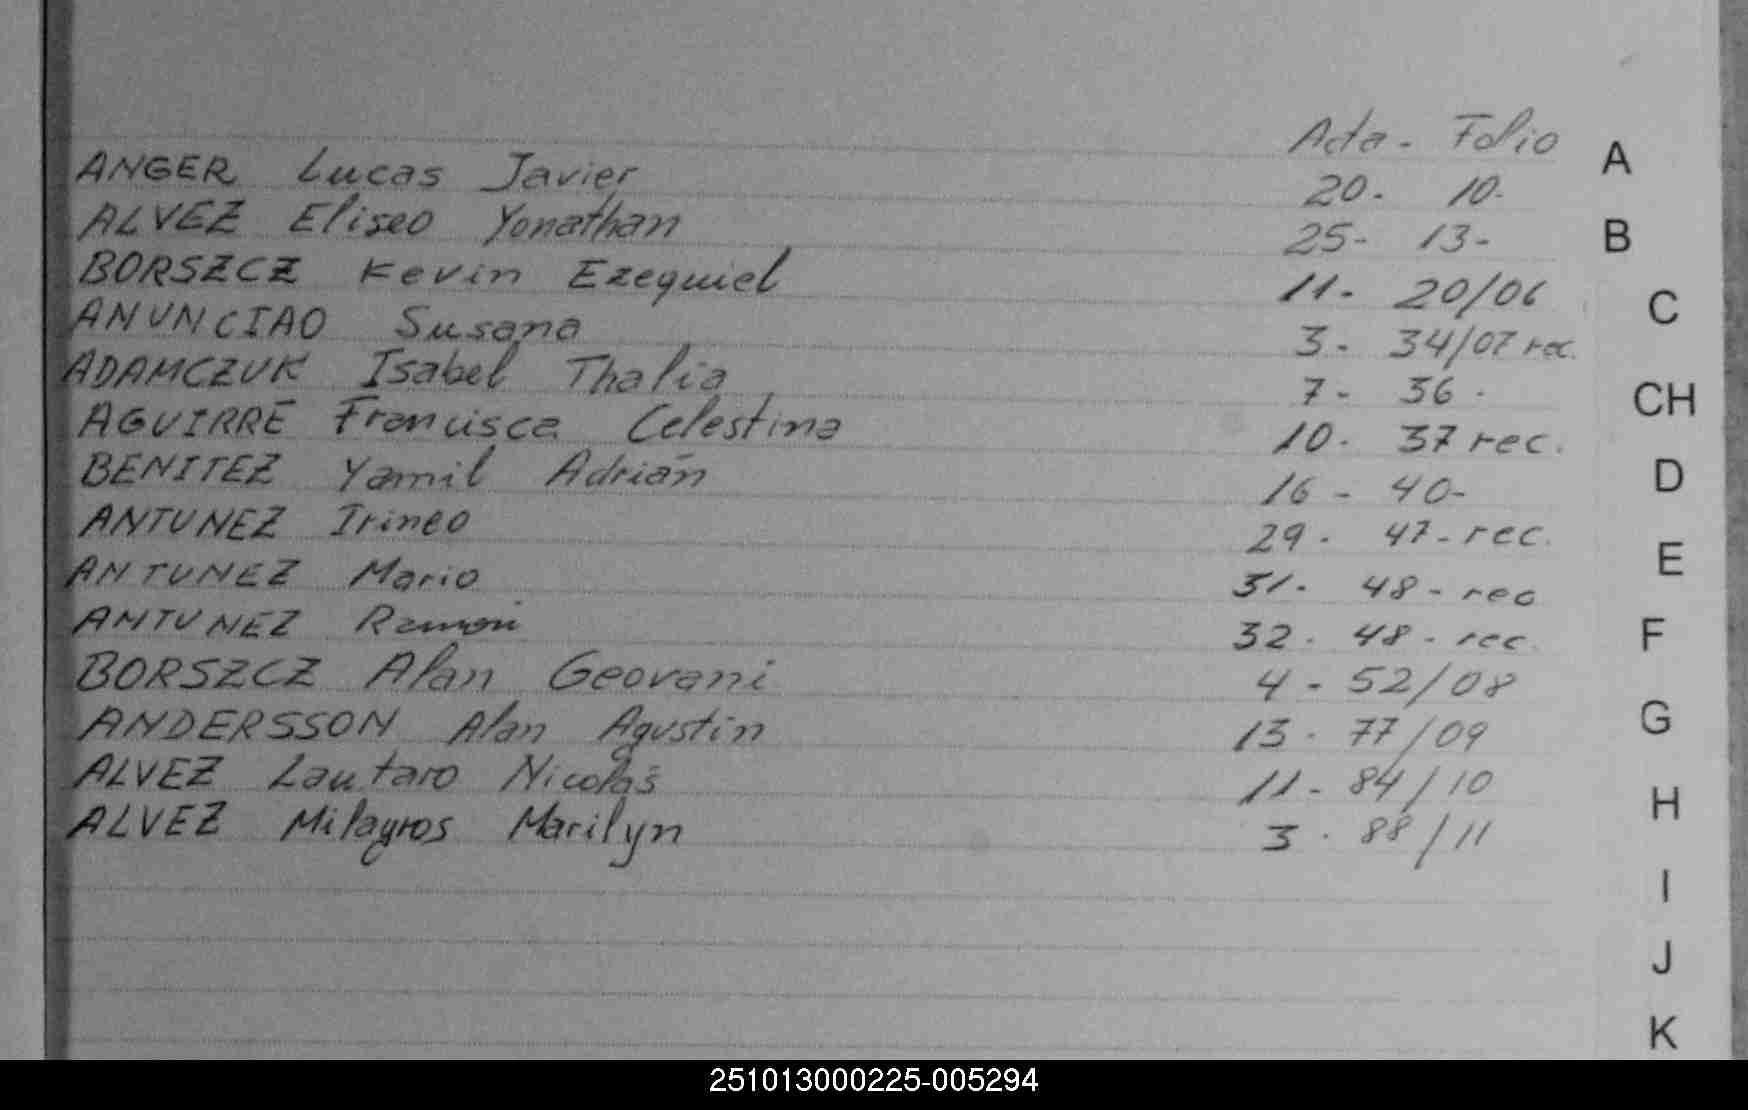 Acta - Folio
A
ANGER Lucas Javier 20 - 10 -
ALVEZ Eliseo Yonathan 25 - 13 -
B
BORSZCZ Kevin Ezequiel 11 - 20/06
C
ANUNCIAO Susana 3 - 34/07 rec.
ADAMCZUK Isabel Thalia 7 - 36 -
CH
AGUIRRE Francisca Celestina 10 - 37 rec.
BENITEZ Yamil Adrián 16 - 40 -
D
ANTUNEZ Irineo 29 - 47 - rec.
E
ANTUNEZ Mario 31 - 48 - rec
ANTUNEZ Ramón 32 - 48 - rec.
F
BORSZCZ Alan Geovani 4 - 52/08
G
ANDERSSON Alan Agustin 13 - 77/09
ALVEZ Lautaro Nicolás 11 - 84/10
H
ALVEZ Milagros Marilyn 3 - 88/11
I
J
K
251013000225-005294